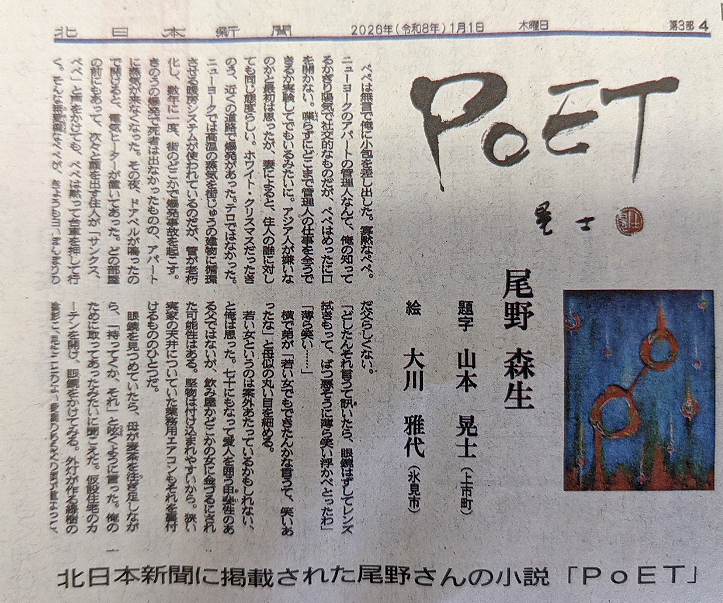 北日本新聞
2026年(令和8年)1月1日
木曜日
第3部 4
PoET
晃士
尾野 森生
題字 山本 晃士(上市町)
絵 大川 雅代(氷見市)
ペペは無言で俺に小包を差し出した。寡黙なペペ。
ニューヨークのアパートの管理人なんて、俺の知って
るかぎり陽気で社交的なものだが、ペペはめったに口
を開かない。喋らずにどこまで管理人の仕事を全うで
きるか実験してでもいるみたいに。アジア人が嫌いな
のかと最初は思ったが、妻によると、住人の誰に対し
ても同じ態度らしい。ホワイト・クリスマスだったき
のう、近くの道路で爆発があった。テロではなかった。
ニューヨークでは高温の蒸気を街じゅうの建物に循環
させる暖房システムが使われているのだが、管が老朽
化し、数年に一度、街のどこかで爆発事故を起こす。
きのうの爆発で死者は出なかったものの、アパート
に蒸気が来なくなった。その夜、ドアベルが鳴ったの
で開けると、電気ヒーターが置いてあった。どの部屋
の前にもあって、次々と顔を出す住人が「サンクス、
ペペ」と声をかけても、ペペは黙って台車を押して行
だぶらしくない。
「どしたんそれ言うて訊いたら、眼鏡はずしてレンズ
拭きもって、ばつ悪そうに薄ら笑い浮かべとったわ」
「薄ら笑い……」
横で弟が「若い女でもできたんかな言うて、笑いあ
ったな」と母似の丸い目を細める。
若い女というのは案外あたっているかもしれない、
と俺は思った。七十にもなって愛人を囲う甲斐性のあ
る父ではないが、飲み屋かどこかの女に金づるにされ
た可能性はある。堅物は付け込まれやすいから。狭い
実家の天井についていた業務用エアコンもそれを裏付
けるもののひとつだ。
眼鏡を見つめていたら、母が麦茶を注ぎ足しなが
ら、「持ってってか、それ」と呟くように言った。俺の
ために取ってあったみたいに聞こえた。仮設住宅のカ
ーテンを開け、眼鏡をかけてみる。外灯が作る縁樹の
北日本新聞に掲載された尾野さんの小説「PoET」